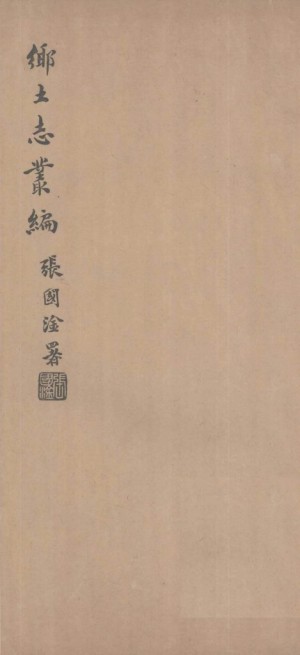 鄉土志叢編
張國淦署